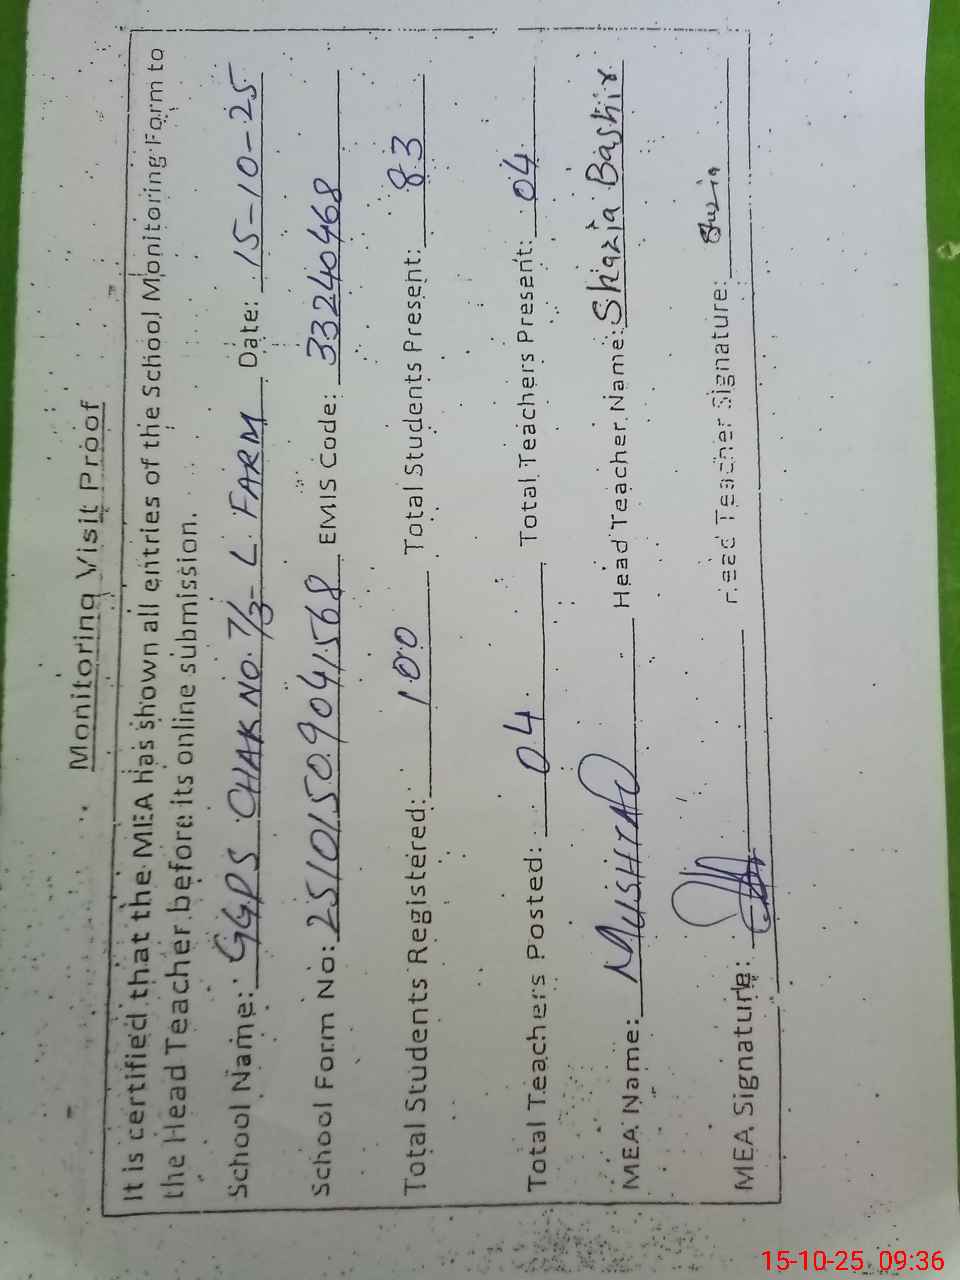 Monitoring Visit Proof
It is certified that the MEA has shown all entries of the School Monitoring Form to
the Head Teacher before its online submission.
School Name: GGPS CHAK NO. 7/3-L FARM Date: 15-10-25
School Form No: 25101509041568 EMIS Code: 33240468
Total Students Registered: 100 Total Students Present: 83
Total Teachers Posted: 04 Total Teachers Present: 04
MEA Name: MUSHTAQ Head Teacher Name: Shazia Bashir
MEA Signature: Head Teacher Signature: Shazia
15-10-25 09:36